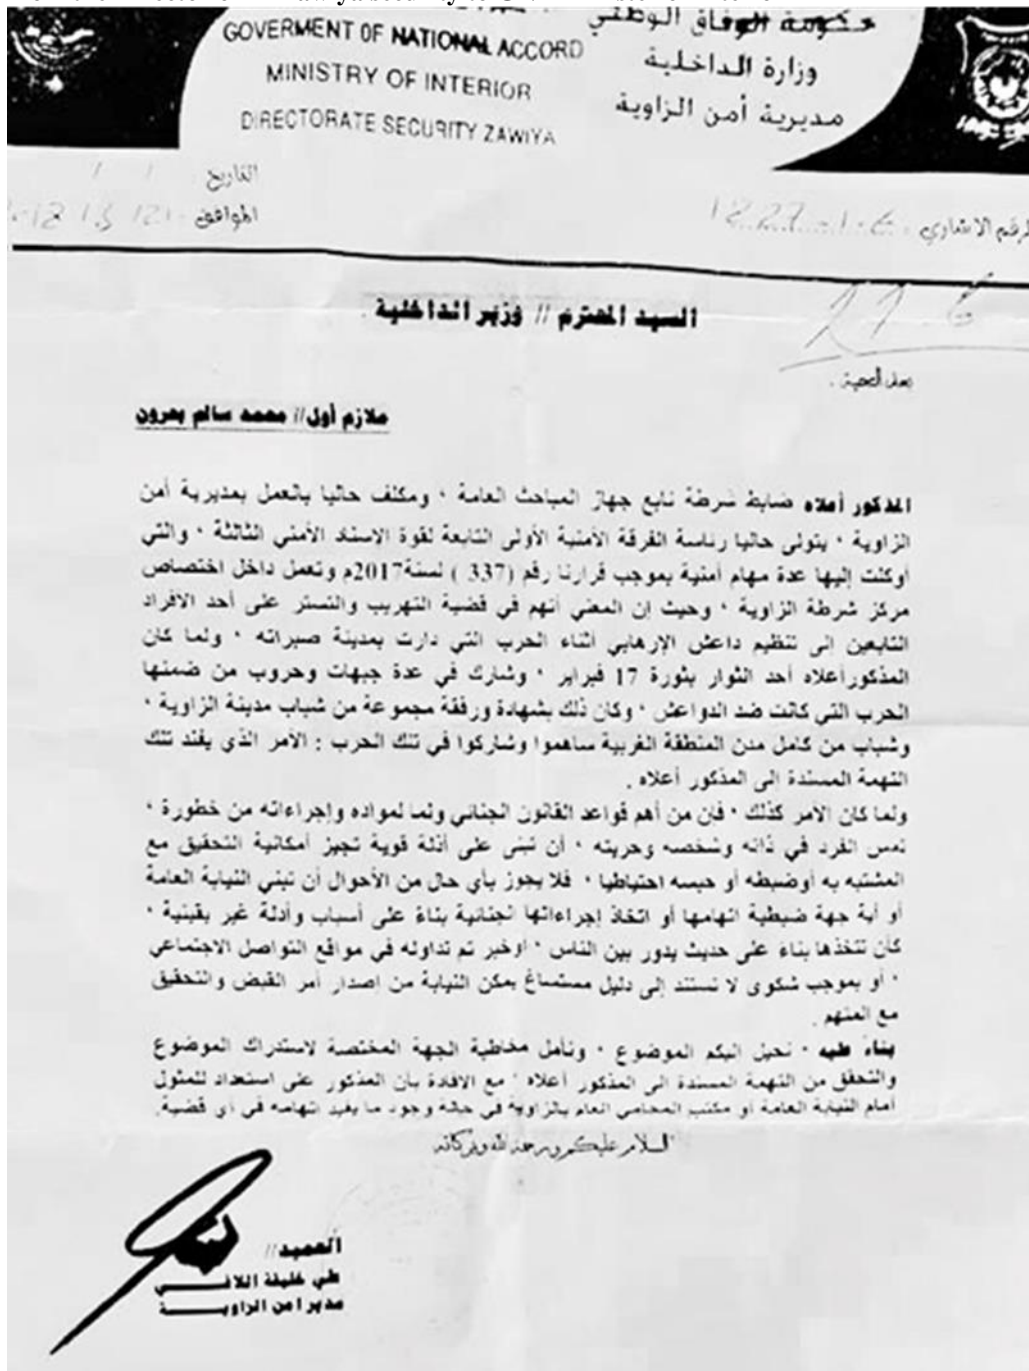 GOVERMENT OF NATIONAL ACCORD
MINISTRY OF INTERIOR
DIRECTORATE SECURITY ZAWIYA
حكومة الوفاق الوطني
وزارة الداخلية
مديرية أمن الزاوية
التاريخ / /
الموافق
الرقم الاشاري
السيد المحترم // وزير الداخلية .
بعد التحية .
ملازم أول // محمد سالم بحرون
المذكور أعلاه ضابط شرطة تابع جهاز المباحث العامة ، ومكلف حاليا بالعمل بمديرية أمن
الزاوية ، يتولى حاليا رئاسة الفرقة الأمنية الأولى التابعة لقوة الإسناد الأمني الثالثة ، والتي
أوكلت إليها عدة مهام أمنية بموجب قرارنا رقم (337 ) لسنة2017م وتعمل داخل اختصاص
مركز شرطة الزاوية ، وحيث إن المعني أتهم في قضية التهريب والتستر على أحد الافراد
التابعين الى تنظيم داعش الإرهابي أثناء الحرب التي دارت بمدينة صبراته ، ولما كان
المذكورأعلاه أحد الثوار بثورة 17 فبراير ، وشارك في عدة جبهات وحروب من ضمنها
الحرب التي كانت ضد الدواعش ، وكان ذلك بشهادة ورفقة مجموعة من شباب مدينة الزاوية ،
وشباب من كامل مدن المنطقة الغربية ساهموا وشاركوا في تلك الحرب : الأمر الذي يفند تلك
التهمة المسندة الى المذكور أعلاه .
ولما كان الأمر كذلك ، فإن من أهم قواعد القانون الجنائي ولما لمواده وإجراءاته من خطورة ،
تمس الفرد في ذاته وشخصه وحريته ، أن تبنى على أدلة قوية تجيز أمكانية التحقيق مع
المشتبه به أوضبطه أو حبسه احتياطيا ، فلا يجوز بأي حال من الأحوال أن تبني النيابة العامة
أو أية جهة ضبطية اتهامها أو اتخاذ إجراءاتها الجنائية بناءً على أسباب وأدلة غير يقينية ،
كأن تتخذها بناء على حديث يدور بين الناس ، أوخبر تم تداوله في مواقع التواصل الاجتماعي
، أو بموجب شكوى لا تستند إلى دليل مستساغ يمكن النيابة من اصدار أمر القبض والتحقيق
مع المتهم .
بناءً عليه ، نحيل اليكم الموضوع ، ونأمل مخاطبة الجهة المختصة لاستدراك الموضوع
والتحقق من التهمة المسندة الى المذكور أعلاه ، مع الافادة بأن المذكور على استعداد للمثول
أمام النيابة العامة أو مكتب المحامي العام بالزاوية في حالة وجود ما يفيد اتهامه في أي قضية.
السلام عليكم ورحمة الله وبركاته
العميد //
علي خليفة اللافي
مدير أمن الزاوية